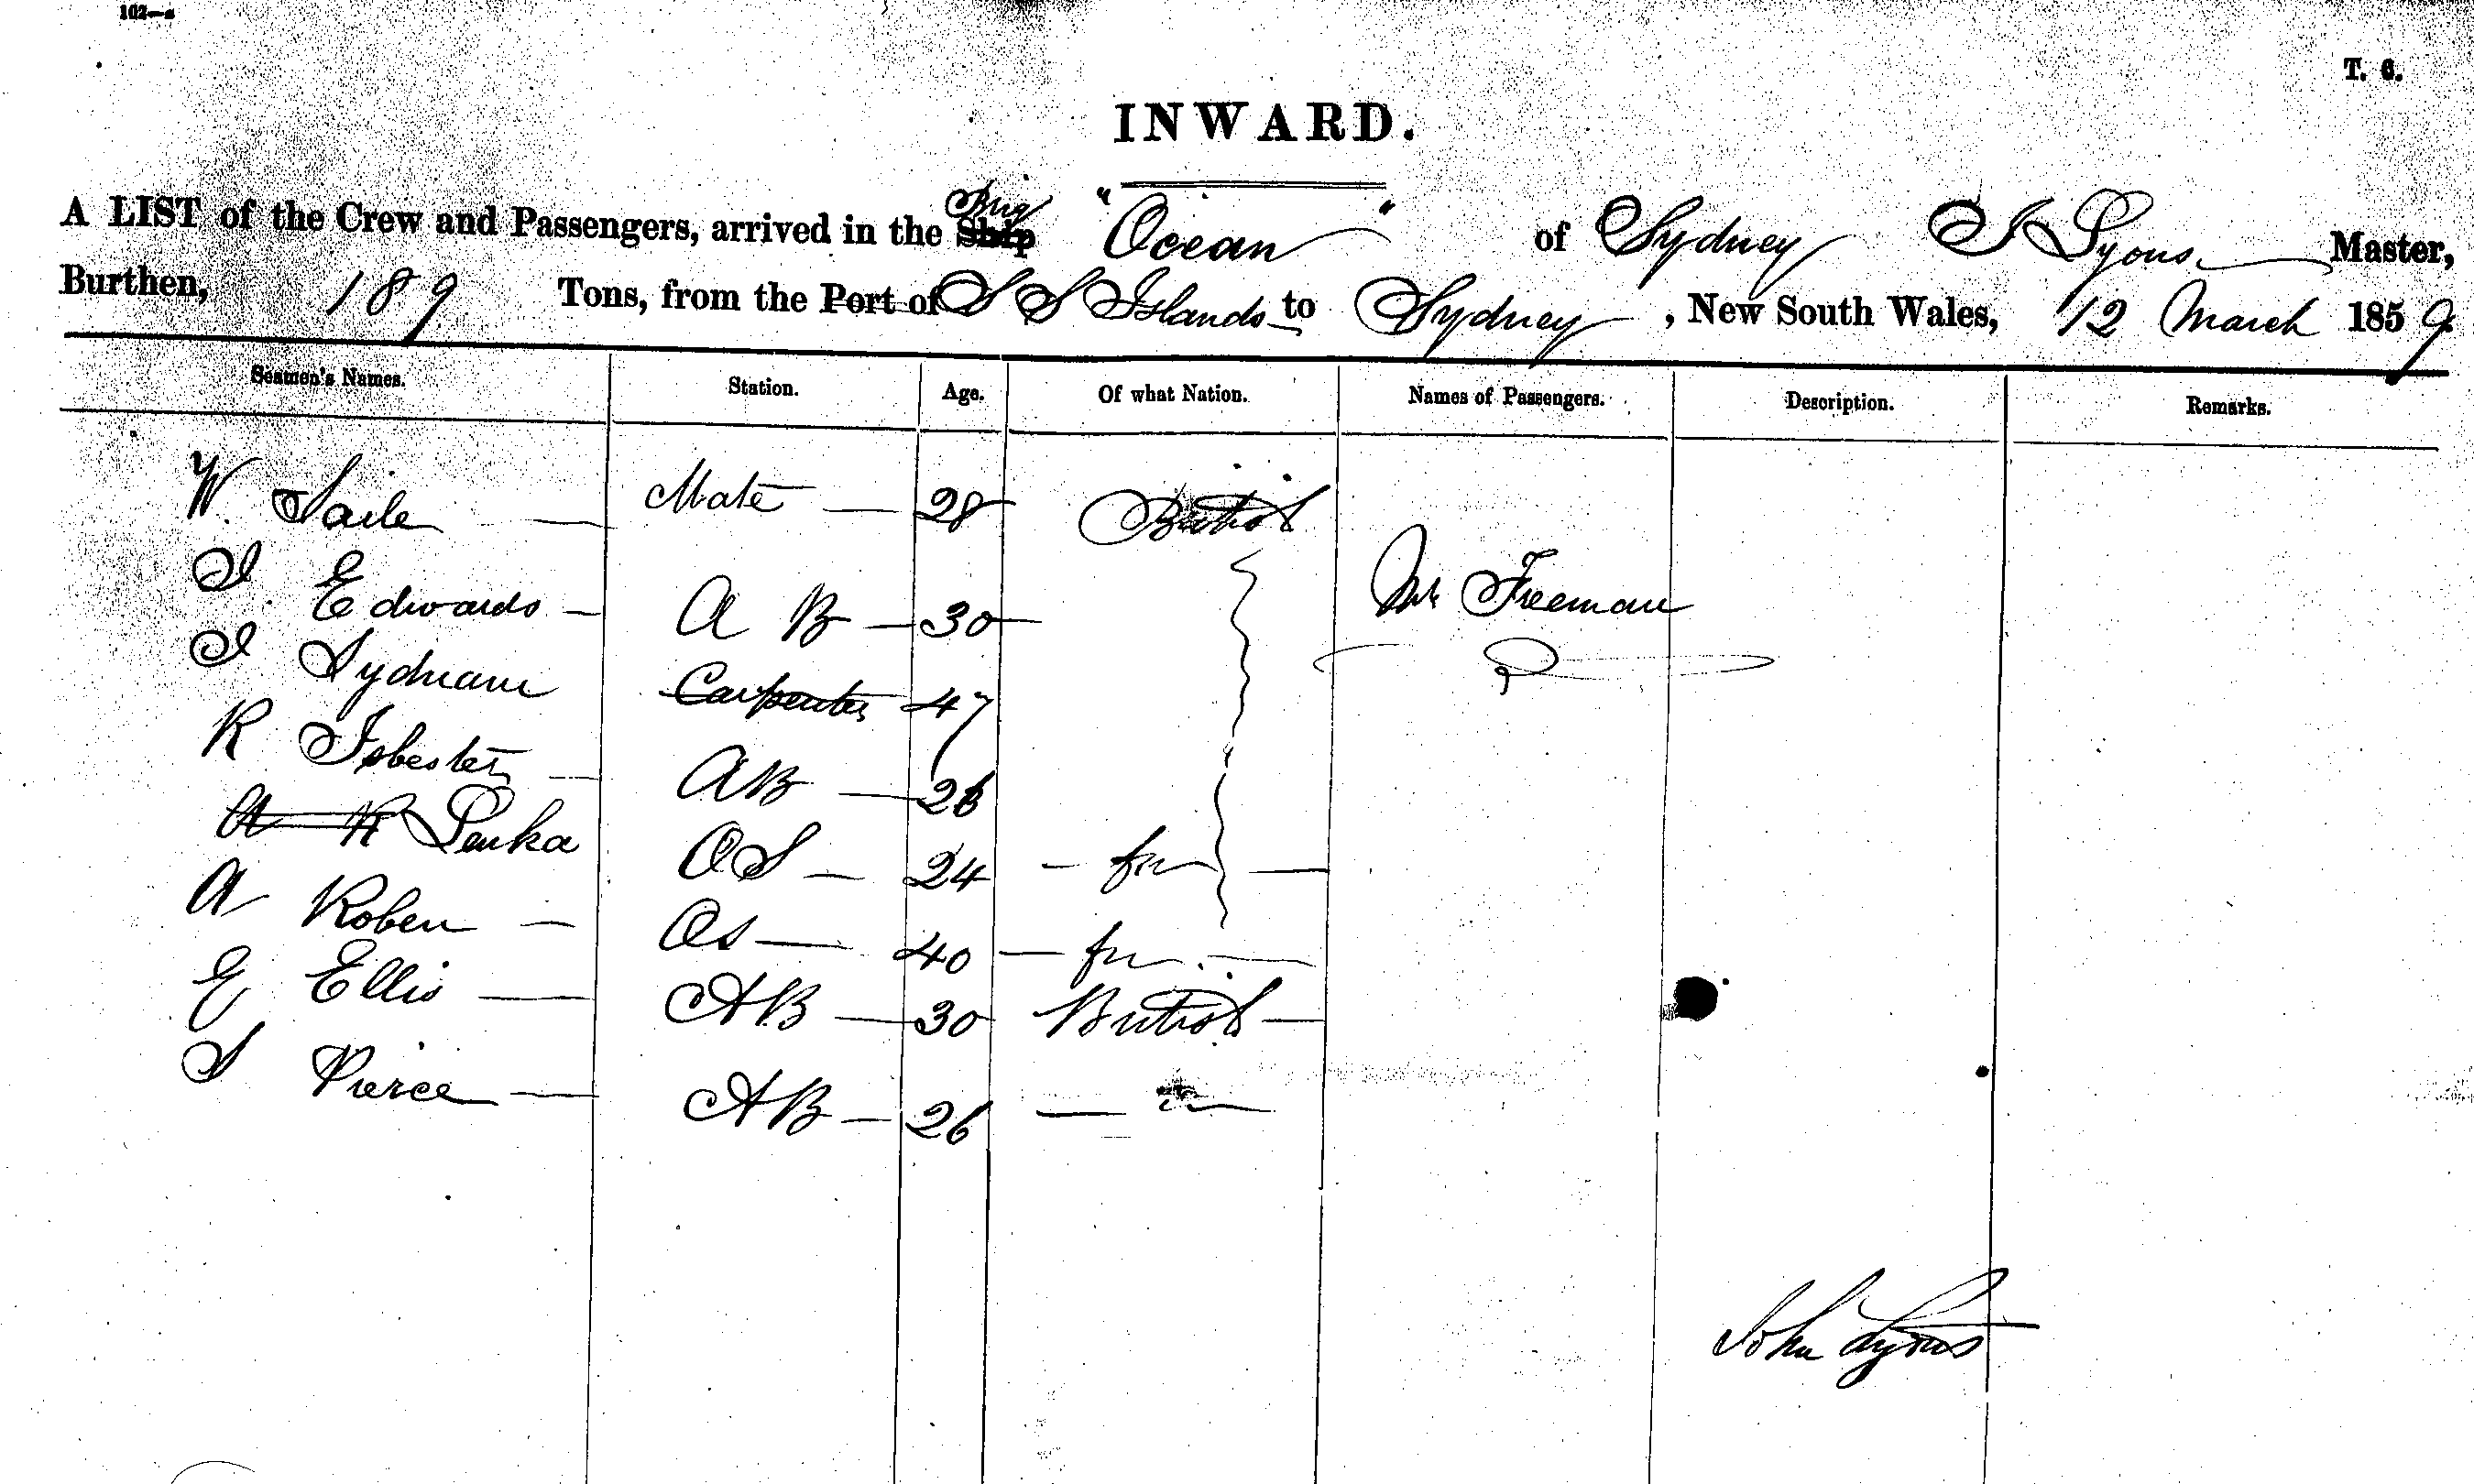 102—a
T. 6.
INWARD.
A LIST of the Crew and Passengers, arrived in the Ship Brig "Ocean" of Sydney J Lyons Master,
Burthen, 189 Tons, from the Port of S S Islands to Sydney, New South Wales, 12 March 1859
Seamen's Names. Station. Age. Of what Nation. Names of Passengers. Description. Remarks.
W. Mate 28 British
J. Edwards A B 30 Mr Freeman
J Sydnam Carpenter 47
R Isbester AB 26
A R Penka OS 24
A Roben OS 40
E Ellis AB 30 British
S Pierce AB 26
John Lyons